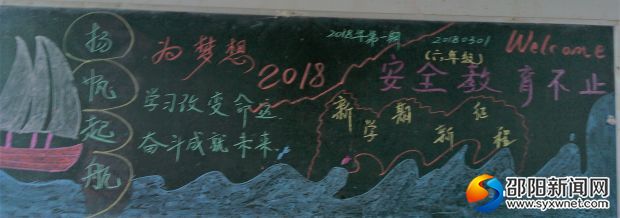 扬帆起航
为梦想
2018
学习改变命运
奋斗成就未来.
2018年第一期
20180301
(六年级)
Welcome
安全教育不止
新学期 新征程
邵阳新闻网
www.syxwnet.com